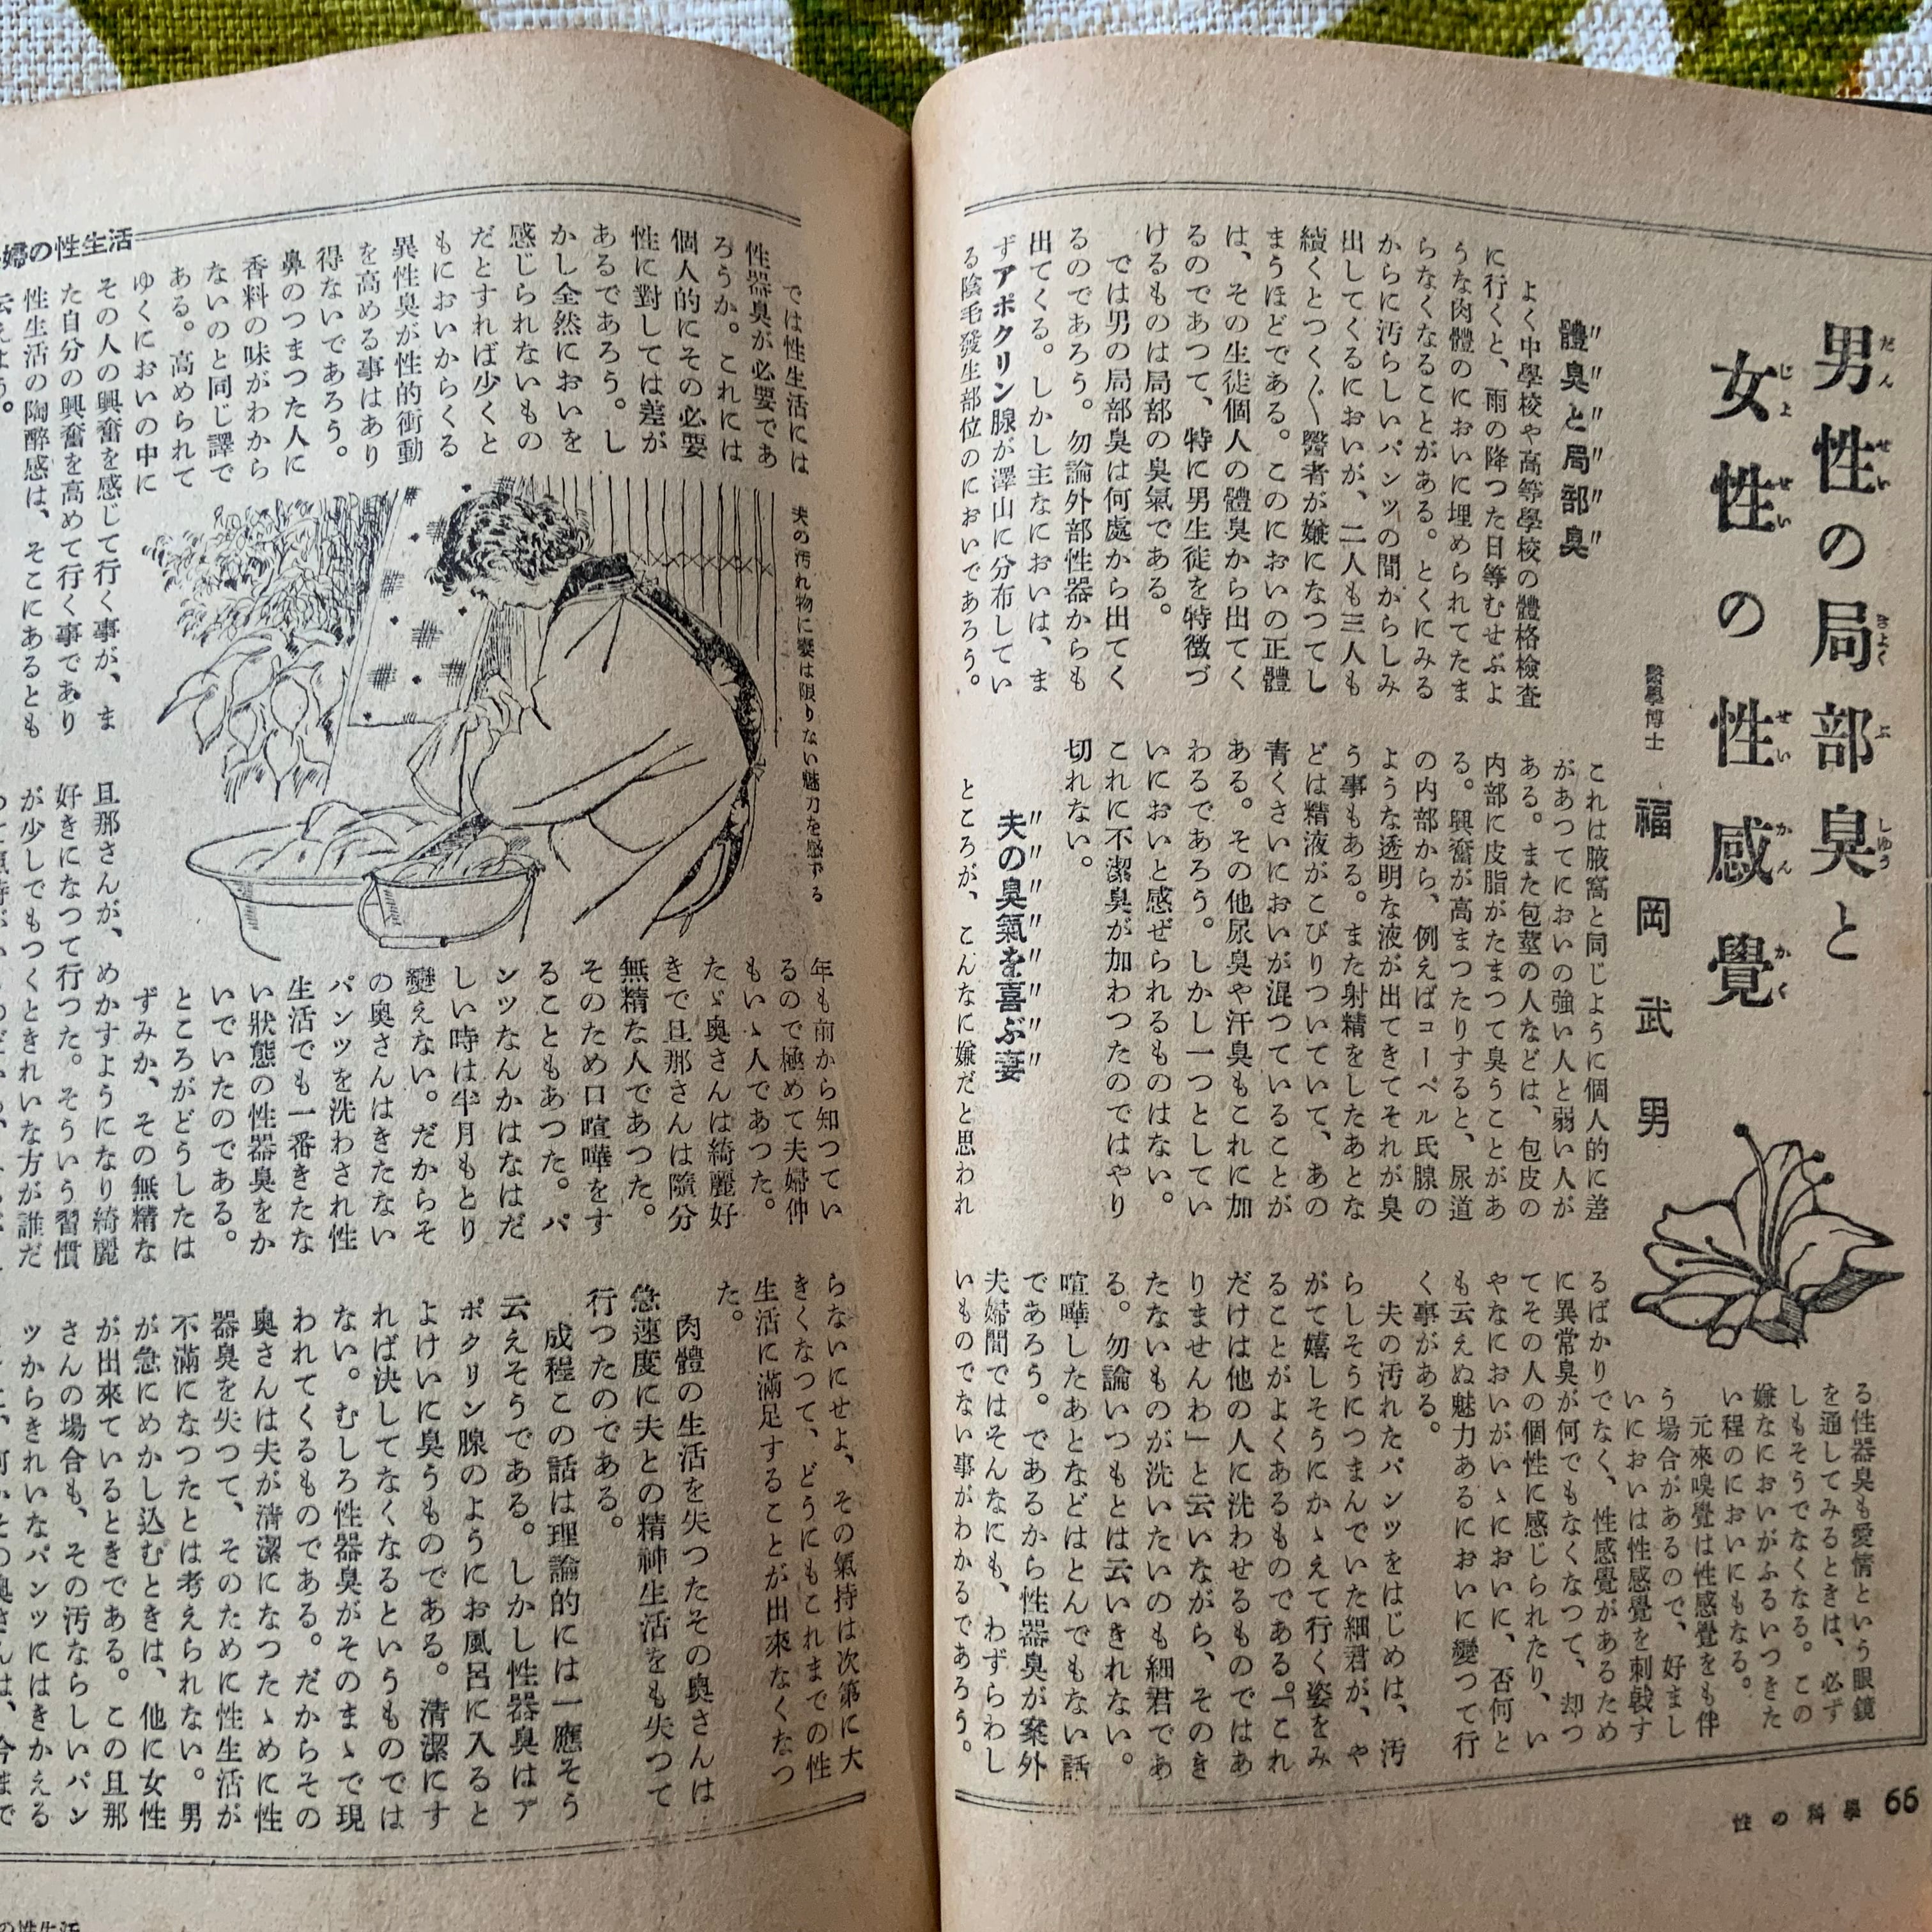 男性の局部臭と
女性の性感覺
醫學博士 福岡武男
體臭と局部臭
よく中學校や高等學校の體格檢査
に行くと、雨の降つた日等むせぶよ
うな肉體のにおいに埋められてたま
らなくなることがある。とくにみる
からに汚らしいパンツの間からしみ
出してくるにおいが、二人も三人も
續くとつく〲醫者が嫌になつてし
まうほどである。このにおいの正體
は、その生徒個人の體臭から出てく
るのであつて、特に男生徒を特徴づ
けるものは局部の臭氣である。
では男の局部臭は何處から出てく
るのであろう。勿論外部性器からも
出てくる。しかし主なにおいは、ま
ずアポクリン腺が澤山に分布してい
る陰毛發生部位のにおいであろう。
これは腋窩と同じように個人的に差
があつてにおいの強い人と弱い人が
ある。また包莖の人などは、包皮の
内部に皮脂がたまつて臭うことがあ
る。興奮が高まつたりすると、尿道
の内部から、例えばコーペル氏腺の
ような透明な液が出てきてそれが臭
う事もある。また射精をしたあとな
どは精液がこびりついていて、あの
青くさいにおいが混つていることが
ある。その他尿臭や汗臭もこれに加
わるであろう。しかし一つとしてい
いにおいと感ぜられるものはない。
これに不潔臭が加わつたのではやり
切れない。
夫の臭氣を喜ぶ妻
ところが、こんなに嫌だと思われ
る性器臭も愛情という眼鏡
を通してみるときは、必ず
しもそうでなくなる。この
嫌なにおいがふるいつきた
い程のにおいにもなる。
元來嗅覺は性感覺をも伴
う場合があるので、好まし
いにおいは性感覺を刺戟す
るばかりでなく、性感覺があるため
に異常臭が何でもなくなつて、却つ
てその人の個性に感じられたり、い
やなにおいがいゝにおいに、否何と
も云えぬ魅力あるにおいに變つて行
く事がある。
夫の汚れたパンツをはじめは、汚
らしそうにつまんでいた細君が、や
がて嬉しそうにかゝえて行く姿をみ
ることがよくあるものである。「これ
だけは他の人に洗わせるものではあ
りませんわ」と云いながら、そのき
たないものが洗いたいのも細君であ
る。勿論いつもとは云いきれない。
喧嘩したあとなどはとんでもない話
であろう。であるから性器臭が案外
夫婦間ではそんなにも、わずらわし
いものでない事がわかるであろう。
性の科學 66
では性生活には
性器臭が必要であ
ろうか。これには
個人的にその必要
性に對しては差が
あるであろう。し
かし全然においを
感じられないもの
だとすれば少くと
もにおいからくる
異性臭が性的衝動
を高める事はあり
得ないであろう。
鼻のつまつた人に
香料の味がわから
ないのと同じ譯で
ある。高められて
ゆくにおいの中に
その人の興奮を感じて行く事が、ま
た自分の興奮を高めて行く事であり
性生活の陶醉感は、そこにあるとも
云えよう。
夫の汚れ物に妻は限りない魅力を感ずる
年も前から知つてい
るので極めて夫婦仲
もいゝ人であつた。
たゞ奥さんは綺麗好
きで旦那さんは隨分
無精な人であつた。
そのため口喧嘩をす
ることもあつた。パ
ンツなんかはなはだ
しい時は半月もとり
變えない。だからそ
の奥さんはきたない
パンツを洗わされ性
生活でも一番きたな
い狀態の性器臭をか
いでいたのである。
ところがどうしたは
ずみか、その無精な
旦那さんが、めかすようになり綺麗
好きになつて行つた。そういう習慣
が少しでもつくときれいな方が誰だ
らないにせよ、その氣持は次第に大
きくなつて、どうにもこれまでの性
生活に滿足することが出來なくなつ
た。
肉體の生活を失つたその奥さんは
急速度に夫との精神生活をも失つて
行つたのである。
成程この話は理論的には一應そう
云えそうである。しかし性器臭はア
ポクリン腺のようにお風呂に入ると
よけいに臭うものである。清潔にす
れば決してなくなるというものでは
ない。むしろ性器臭がそのまゝで現
われてくるものである。だからその
奥さんは夫が清潔になつたゝめに性
器臭を失つて、そのために性生活が
不滿になつたとは考えられない。男
が急にめかし込むときは、他に女性
が出來ているときである。この旦那
さんの場合も、その汚ならしいパン
ツからきれいなパンツにはきかえる
婦の性生活
の性生活